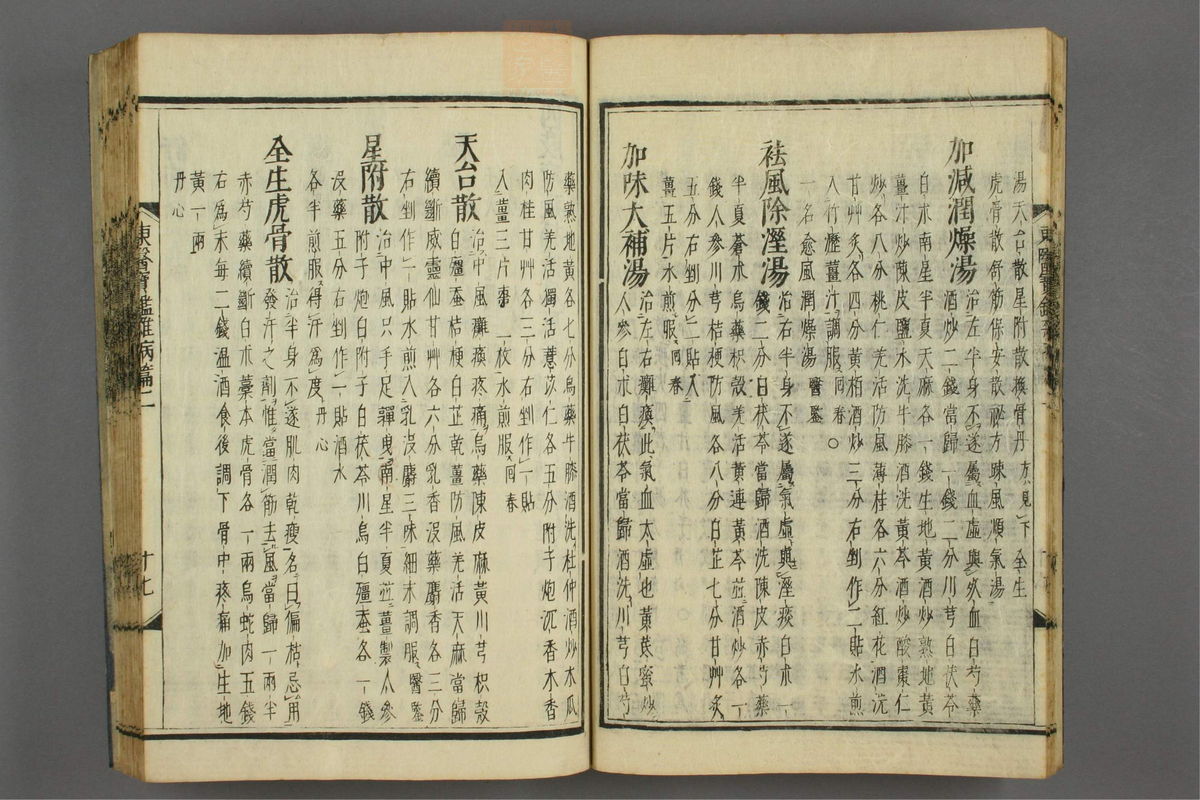 湯天台散星附散換骨丹方見下全生
虎骨散舒筋保安散祕方陳風順氣湯
加減潤燥湯治左半身不遂屬血虛與死血白芍藥
酒炒二錢當歸一錢二分川芎白茯苓
白朮南星半夏天麻各一錢生地黃酒炒熟地黃
薑汁炒陳皮鹽水洗牛膝酒洗黃芩酒炒酸棗仁
炒各八分桃仁羌活防風薄桂各六分紅花酒洗
甘艸炙各四分黃栢酒炒三分右剉作二貼水煎
入竹瀝薑汁調服回春○
一名愈風潤燥湯醫鑒
祛風除溼湯治右半身不遂屬氣虛與溼痰白朮一
錢二分白茯苓當歸酒洗陳皮赤芍藥
半夏蒼朮烏藥枳殼羌活黃連黃芩並酒炒各一
錢人參川芎桔梗防風各八分白芷七分甘艸炙
五分右剉分二貼入
薑五片水煎服回春
加味大補湯治左右癱瘓此氣血太虛也黃芪蜜炒
人參白朮白茯苓當歸酒洗川芎白芍
藥熟地黃各七分烏藥牛膝酒洗杜仲酒炒木瓜
防風羌活獨活薏苡仁各五分附子炮沉香木香
肉桂甘艸各三分右剉作一貼
入薑三片棗一枚水煎服回春
天台散治中風癱瘓疼痛烏藥陳皮麻黃川芎枳殼
白殭蚕桔梗白芷乾薑防風羌活天麻當歸
續斷威靈仙甘艸各六分乳香沒藥麝香各三分
右剉作一貼水煎入乳沒麝三味細末調服醫鑒
星附散治中風只手足嚲曳南星半夏並薑製人參
附子炮白附子白茯苓川烏白殭蚕各一錢
沒藥五分右剉作一貼酒水
各半煎服得汗爲度丹心
全生虎骨散治半身不遂肌肉乾瘦名曰偏枯忌用
發汗之劑惟當潤筋去風當歸一兩半
赤芍藥續斷白朮藁本虎骨各一兩烏蛇肉五錢
右爲末每二錢温酒食後調下骨中疼痛加生地
黃一兩
丹心
東醫寶鑑雜病篇二
十七